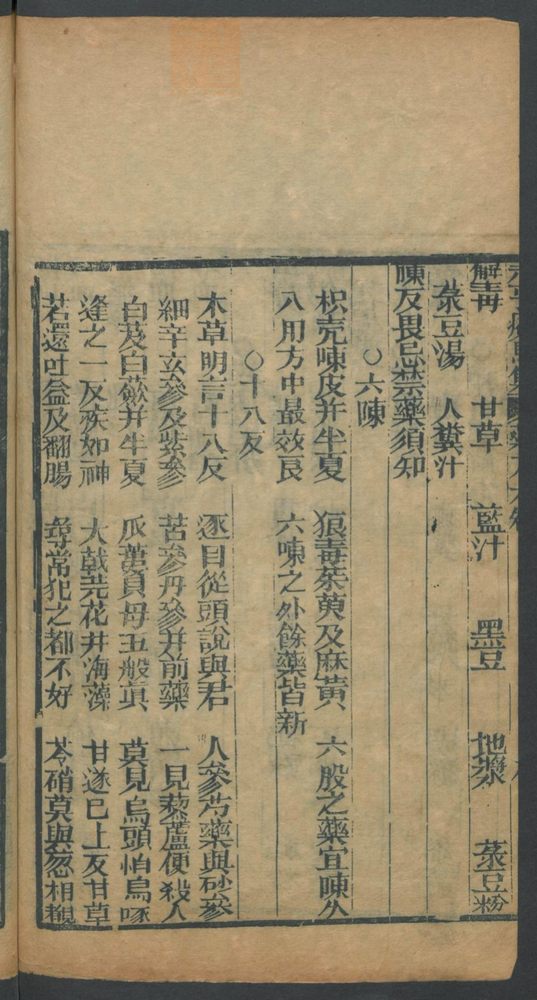 解毒 甘草 藍汁 黑豆 地漿 菉豆粉
菉豆湯 人糞汁
陳反畏忌禁藥須知
○六陳
枳壳陳皮并半夏 狼毒茱萸及麻黃 六般之藥宜陳久
入用方中最效良 六陳之外餘藥皆新
○十八反
本草明言十八反 逐目從頭說與君 人參芍藥與砂參
細辛玄參及紫參 苦參丹參并前藥 一見藜蘆便殺人
白芨白蘞并半夏 瓜蔞貝母五般真 莫見烏頭怕烏啄
逢之一反疾如神 大戟芫花并海藻 甘遂巳上反甘草
若還吐蠱及翻腸 尋常犯之都不好 芩硝莫與葱相覩